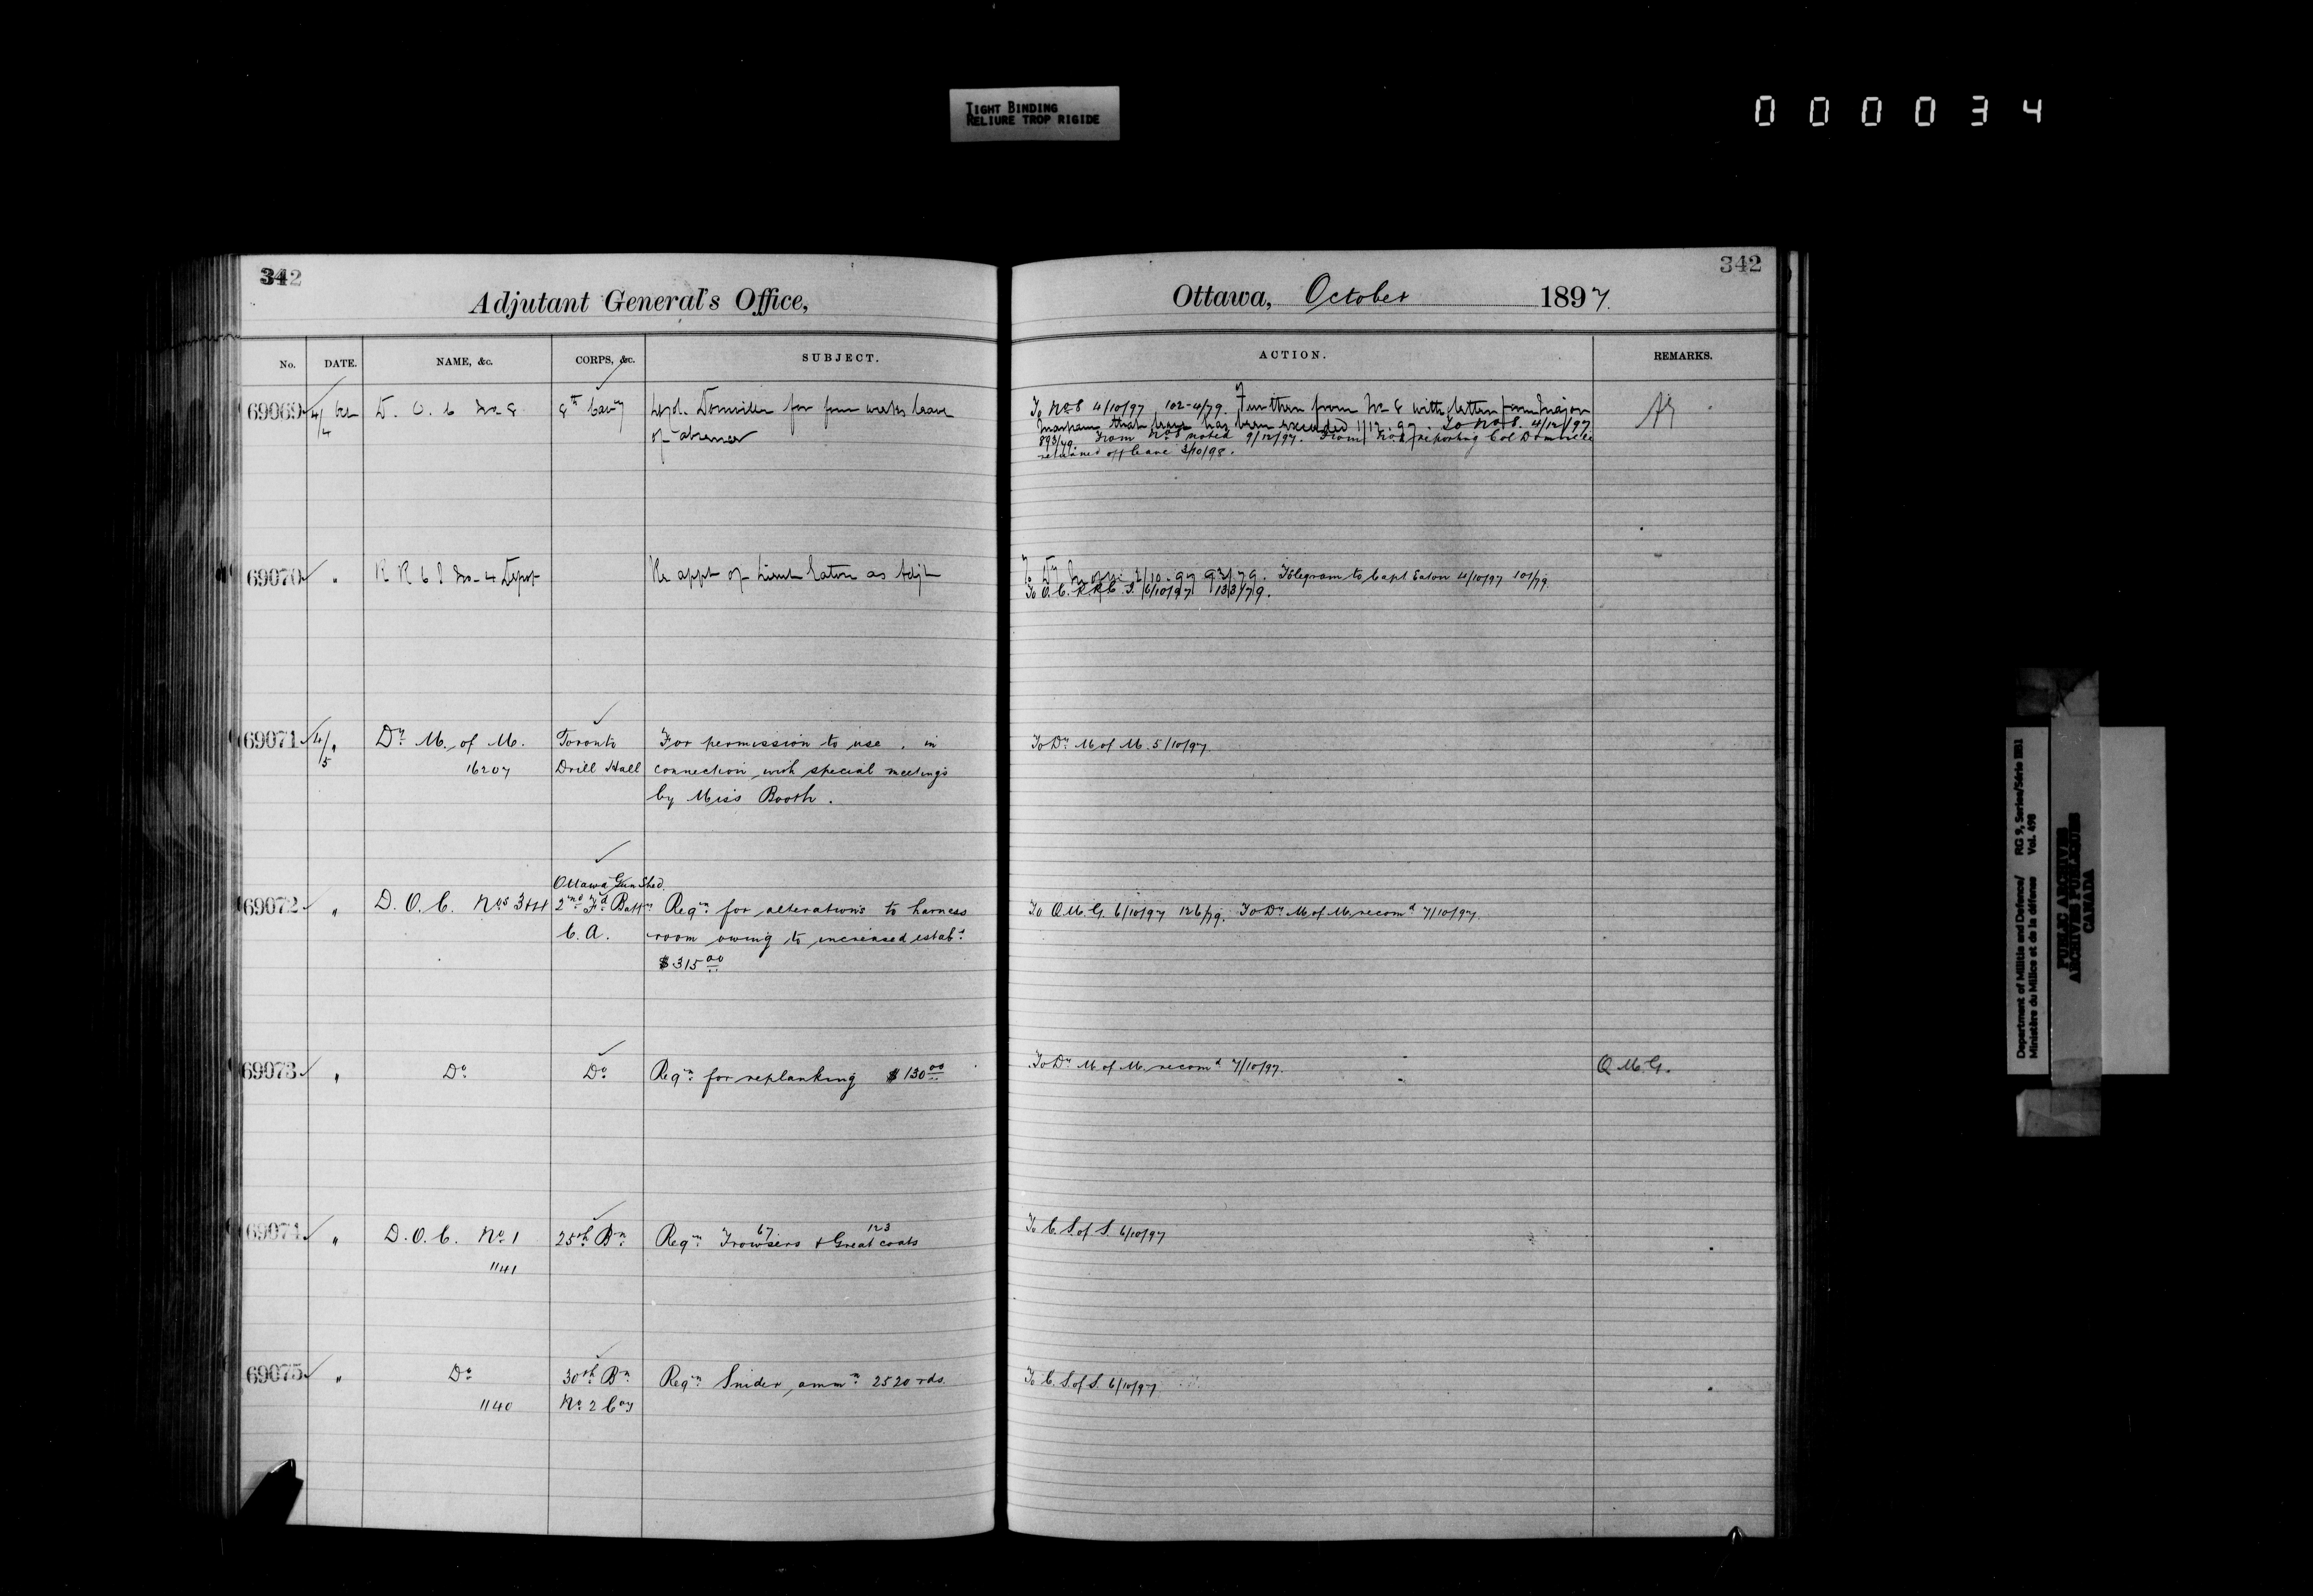 TIGHT BINDING
RELIURE TROP RIGIDE
000034
342
Adjutant General's Office,
No. DATE. NAME, &c. CORPS, &c. SUBJECT.
69069 4/4 Oct D. O. C No 8 8th Cavy Lt Col. Domville for four weeks leave
of absence
69070 " R R C I No 4 Depot Re appt of Lieut Eaton as Adjt
69071 4/5 " Dy M. of M. Toronto For permission to use . in
16207 Drill Hall connection with special meetings
by Miss Booth.
Ottawa Gun Shed.
69072 " D. O. C. Nos 3 & 4 2nd Fd Batty Reqn for alterations to harness
C. A. room owing to increased estabt
$315 00
69073 " Do Do Reqn for replanking $130 00
67 123
69074 " D. O. C. No 1 25th Bn Reqn Trowsers & Great coats
1141
69075 " Do 30th Bn Reqn Snider ammn 2520 rds.
1140 No 2 Coy
342
Ottawa, October 1897.
ACTION. REMARKS.
To No 8 4/10/97 102-4/79. Further from No 8 with letter from Major
Markham that leave has been exceeded 1/12.97. To No 8. 4/12/97
893/79. From No 8 noted 9/12/97. From No 8 reporting Col Domville
returned off leave 3/10/98.
93/79. Telegram to Capt Eaton 4/10/97 101/79.
To O. C. R.R.C. I. 6/10/97 133/79.
To Dy M of M. 5/10/97.
To Q.M.G. 6/10/97 126/79. To Dy M of M recomd 7/10/97.
To Dy M of M recomd 7/10/97. Q.M.G.
To C. S. of S. 6/10/97
To C. S. of S. 6/10/97
Department of Militia and Defence/ RG 9, Series/Série IIB1
Ministère du Milice et de la défense Vol. 498
PUBLIC ARCHIVES
ARCHIVES PUBLIQUES
CANADA